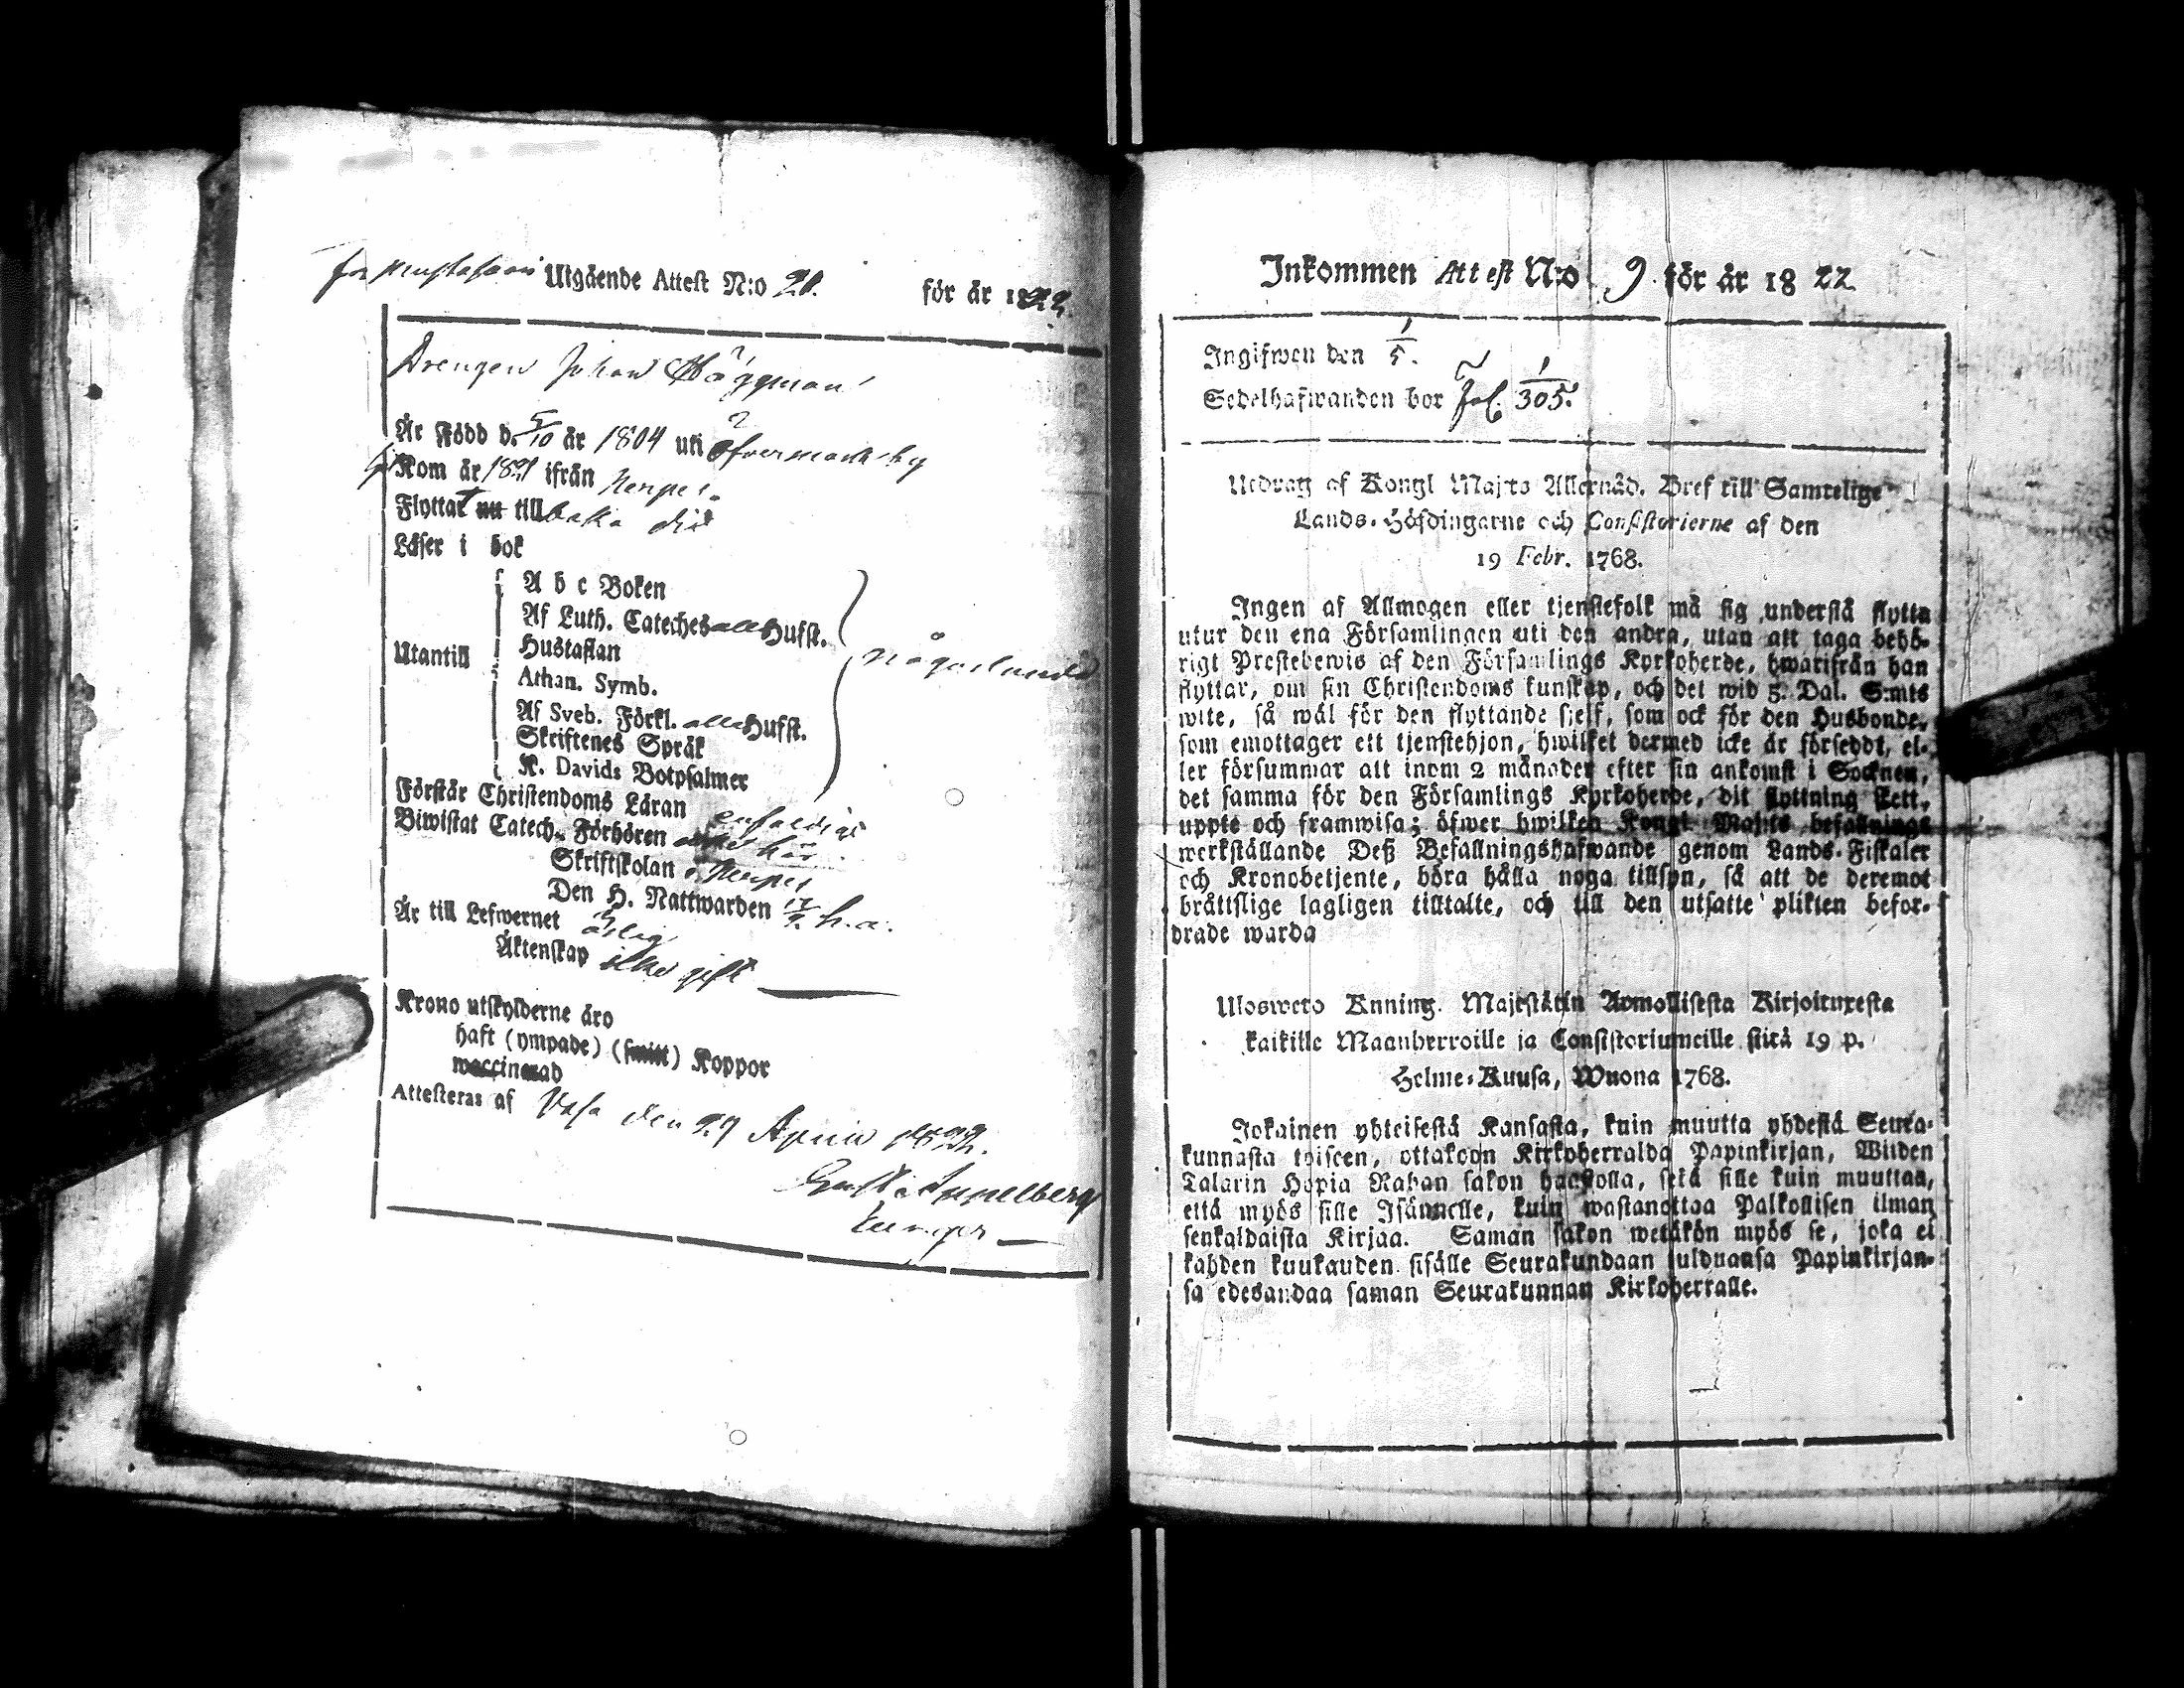 Utgående Attest N:o 20. för år 1822.
Drengen Johan Häggman
År Född d. 5/10 år 1804 uti Öfvermark by
Kom år 1821 ifrån Nerpes.
Flyttat nu till baka dit
Läser i bok
A b c Boken
Af Luth. Cateches alla Hufst.
Utantill
Hustaflan
någorlunda
Athan. Symb.
Af Sveb. Förkl. alla Hufst.
Skriftenes Språk
K. Davids Botpsalmer
Förstår Christendoms Läran enfaldigt
Biwistat Catech. Förhören
Skriftskolan i Nerpes
Den H. Nattwarden h.a.
Är till Lefwernet ärlig
Äktenskap icke gift
Krono utskylderne äro
haft (ympade) (smitt) Koppor
waccinerad
Attesteras af Vasa den 29 April 1822.
Gust. Appelberg
Inkommen Attest N:o 9. för år 1822
Ingifwen den 1/5.
Sedelhafwanden bor Fol. 305.
Utdrag af Kongl Maj:ts Allernåd. Bref till Samtelige
Lands-Höfdingarne och Consistorierne af den
19 Febr. 1768.
Ingen af Allmogen eller tjenstefolk må sig understå flytta
utur den ena Församlingen uti den andra, utan att taga behö-
rigt Prestebewis af den Församlings Kyrkoherde, hwarifrån han
flyttar, om sin Christendoms kunskap, och det wid 5. Dal. S:mts
wite, så wäl för den flyttande sjelf, som ock för den Husbonde,
som emottager ett tjenstehjon, hwilket dermed icke är försedt, el-
ler försummar att inom 2 månader efter sin ankomst i Socknen,
det samma för den Församlings Kyrkoherde, dit flyttning skett,
uppte och framwisa; öfwer hwilken Kongl. Maj:ts befallnings
werkställande Deß Befallningshafwande genom Lands-Fiskaler
och Kronobetjente, böra hålla noga tillsyn, så att de deremot
bråttslige lagligen tilltalte, och till den utsatte plikten befor-
drade warda
Ulosweto Kuning. Majestätin Armollisesta Kirjoituxesta
kaikille Maanherroille ja Consistoriumeille siitä 19 p.
Helme-Kuusa, Wuona 1768.
Jokainen yhteisestä Kansasta, kuin muutta yhdestä Seura-
kunnasta toiseen, ottakoon Kirkoherralda Papinkirjan, Wiiden
Talarin Hopia Rahan sakon haastolla, sekä sille kuin muuttaa,
että myös sille Isännelle, kuin wastanottaa Palkollisen ilman
senkaldaista Kirjaa. Saman sakon wetäkön myös se, joka ei
kahden kuukauden sisälle Seurakundaan tulduansa Papinkirjan-
sa edesandaa saman Seurakunnan Kirkoherralle.